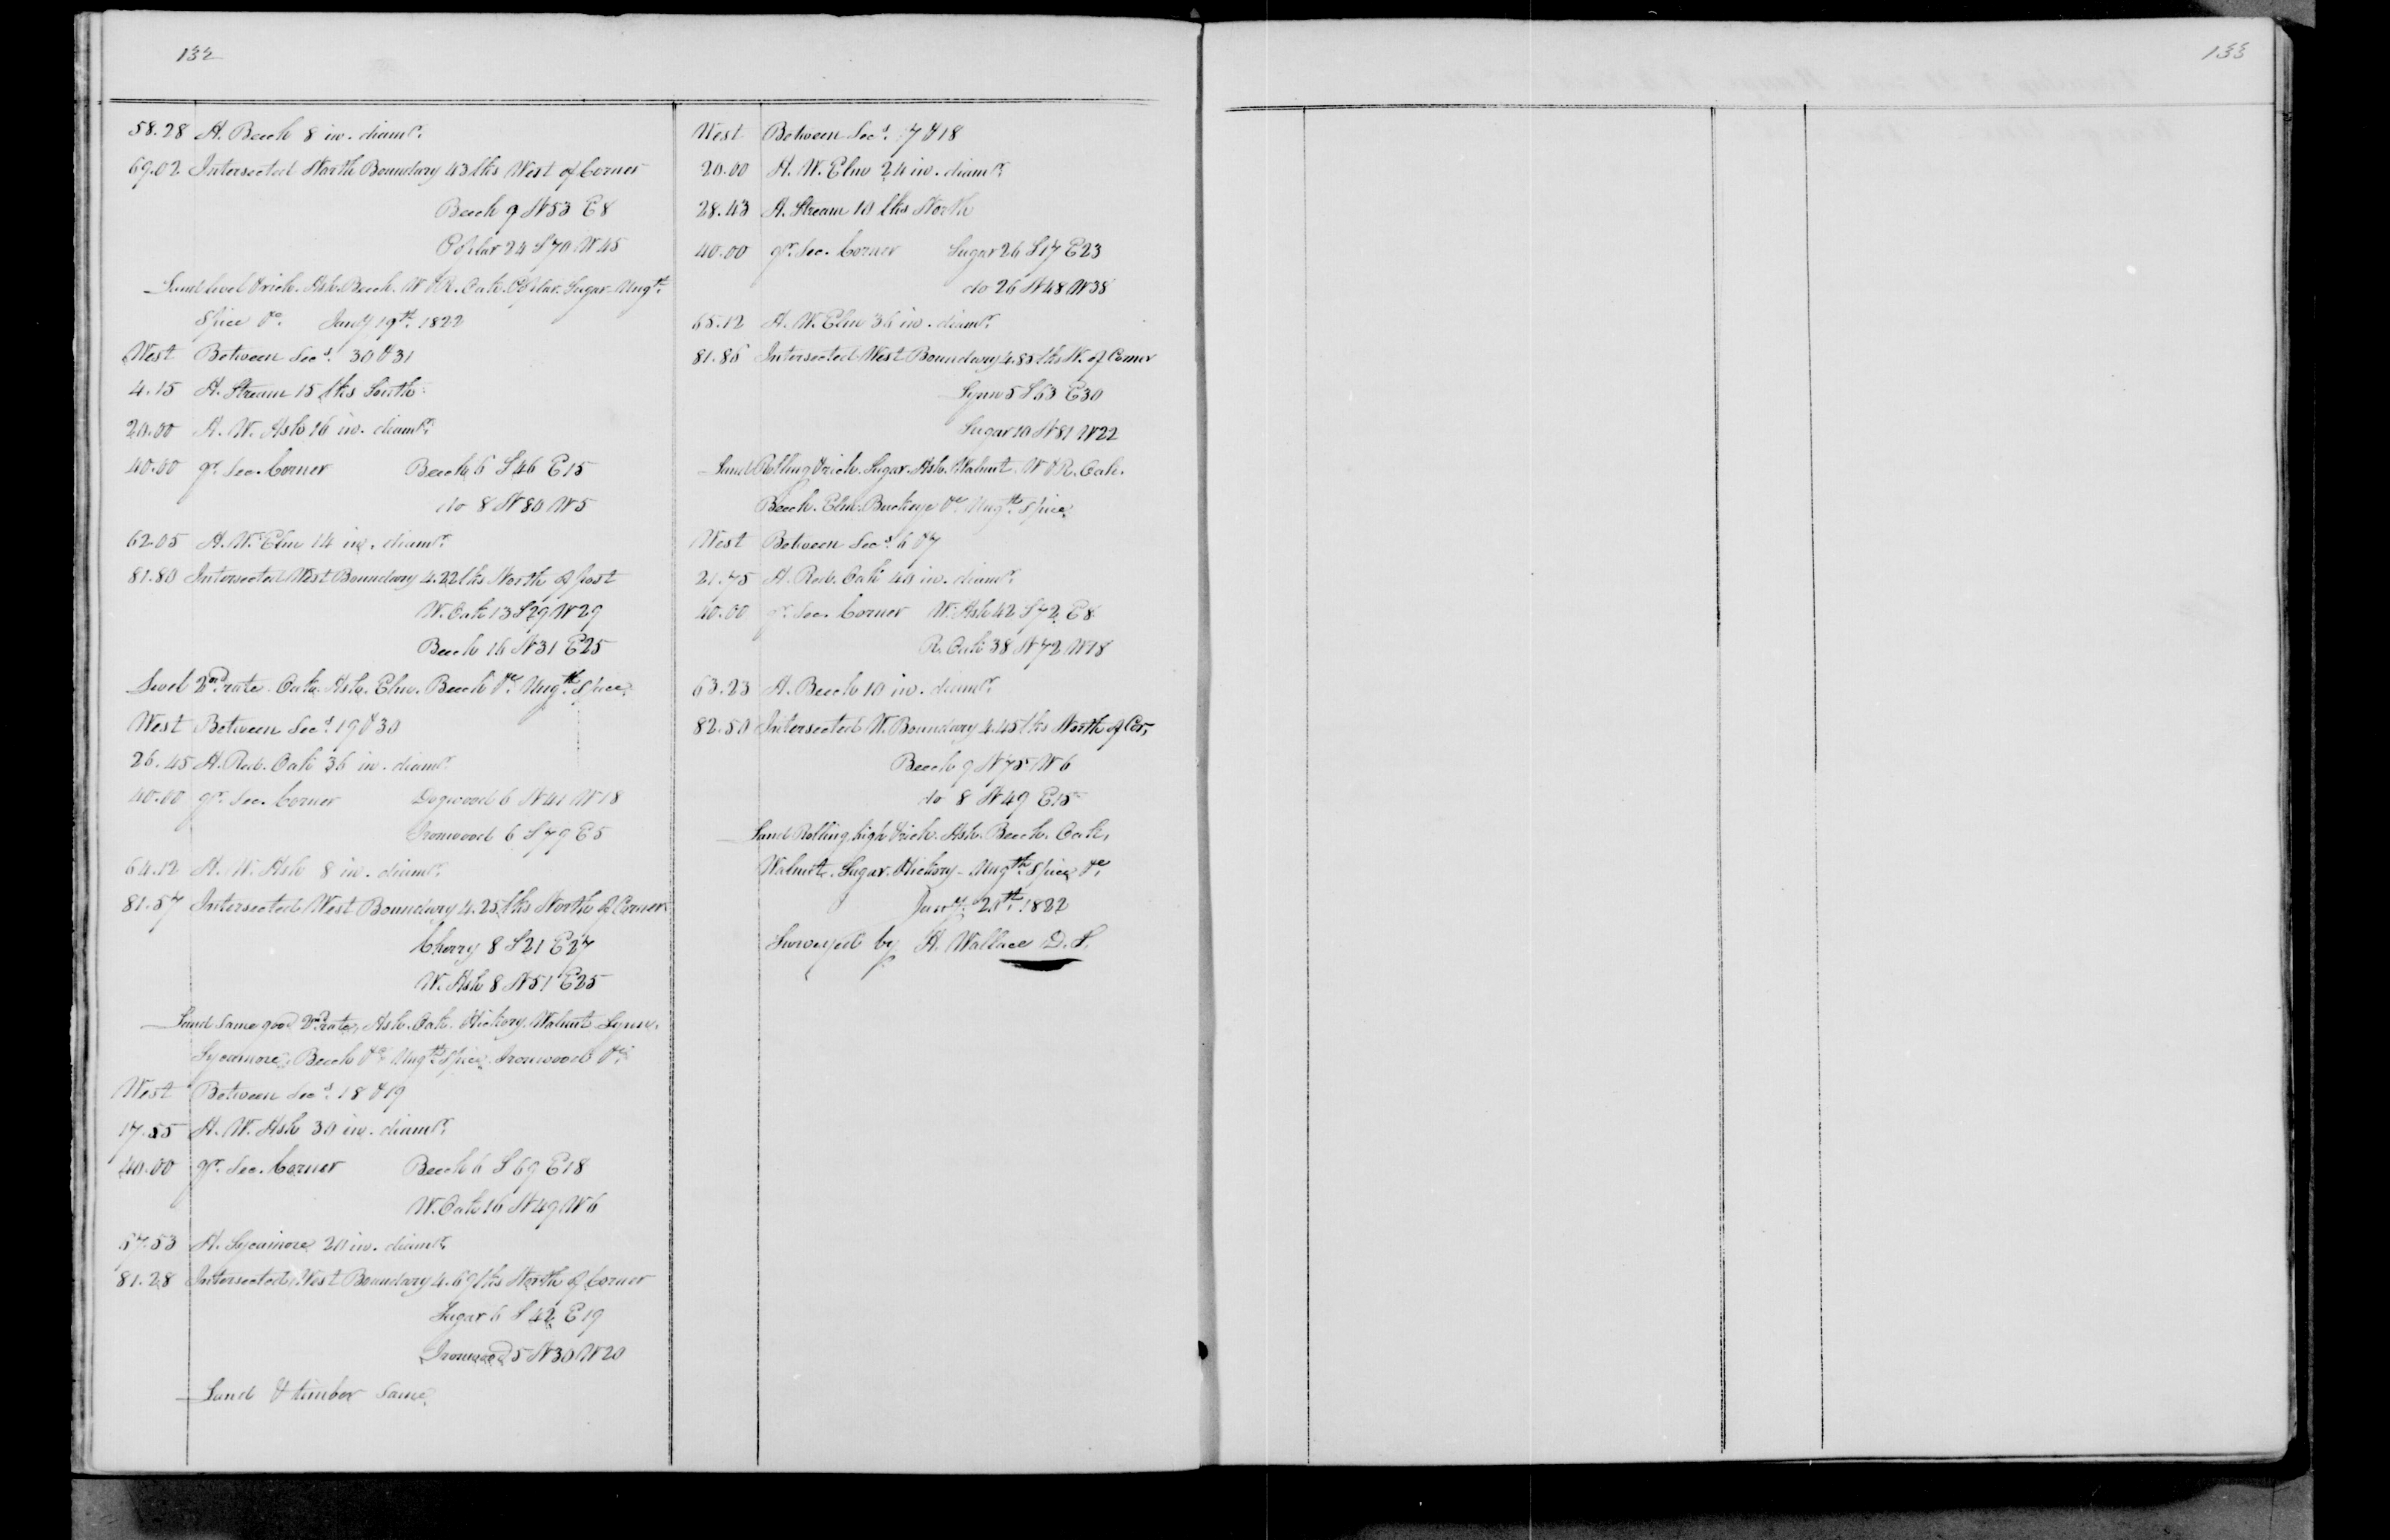 132
58.28 A. Beech 8 in. diamr.
69.02 Intersected North Boundary 43 lks West of Corner
Beech 9 N53 E8
Poplar 24 S70 W45
Land level & rich. Ash. Beech. W & R. Oak. Poplar. Sugar. Ungth.
Spice &c. Jany 19th. 1822
West Between Secs. 30 & 31
4.15 A. Stream 15 lks South
20.00 A. W. Ash 16 in. diamr.
40.00 qr. Sec. Corner Beech 6 S46 E15
do 8 N80 W5
62.05 A. W. Elm 14 in. diamr.
81.80 Intersected West Boundary 4.22 lks North of post
W. Oak 13 S29 W29
Beech 16 N31 E25
Level 2nd rate. Oak. Ash. Elm. Beech &c. Ungth. Spice.
West Between Secs. 19 & 30
26.45 A. Red. Oak 36 in. diamr.
40.00 qr. Sec. Corner Dogwood 6 N41 W18
Ironwood 6 S79 E5
64.12 A. W. Ash 8 in. diamr.
81.57 Intersected West Boundary 4.25 lks North of Corner
Cherry 8 S21 E27
W. Ash 8 N51 E25
Land same good 2nd rate, Ash. Oak. Hickory. Walnut. Lynn.
Sycamore. Beech &c. Ungth. Spice. Ironwood &c.
West Between Secs. 18 & 19
17.55 A. W. Ash 30 in. diamr.
40.00 qr. Sec. Corner Beech 6 S69 E18
W. Oak 16 N49 W6
67.53 A. Sycamore 20 in. diamr.
81.28 Intersected West Boundary 4.69 lks North of Corner
Sugar 6 S42 E19
Ironwood 5 N30 W20
Land & timber same.
West Between Secs. 7 & 18
20.00 A. W. Elm 24 in. diamr.
28.43 A. Stream 10 lks North
40.00 qr. Sec. Corner Sugar 26 S17 E23
do 26 N48 W38
65.12 A. W. Elm 36 in. diamr.
81.86 Intersected West Boundary 4.85 lks N. of Corner
Lynn 5 S63 E30
Sugar 10 N81 W22
Land Rolling & rich. Sugar. Ash. Walnut. W & R. Oak.
Beech. Elm. Buckeye &c. Ungth. Spice
West Between Secs. 6 & 7
21.75 A. Red. Oak 40 in. diamr.
40.00 qr. Sec. Corner W. Ash 42 S72 E8
R. Oak 38 N72 W18
63.23 A. Beech 10 in. diamr.
82.50 Intersected W. Boundary 4.45 lks North of Cor,
Beech 9 N75 W6
do 8 N49 E15
Land Rolling high & rich. Ash. Beech. Oak,
Walnut. Sugar. Hickory. Ungth. Spice &c.
Jany. 20th. 1822
Surveyed by A. Wallace D. S.
133